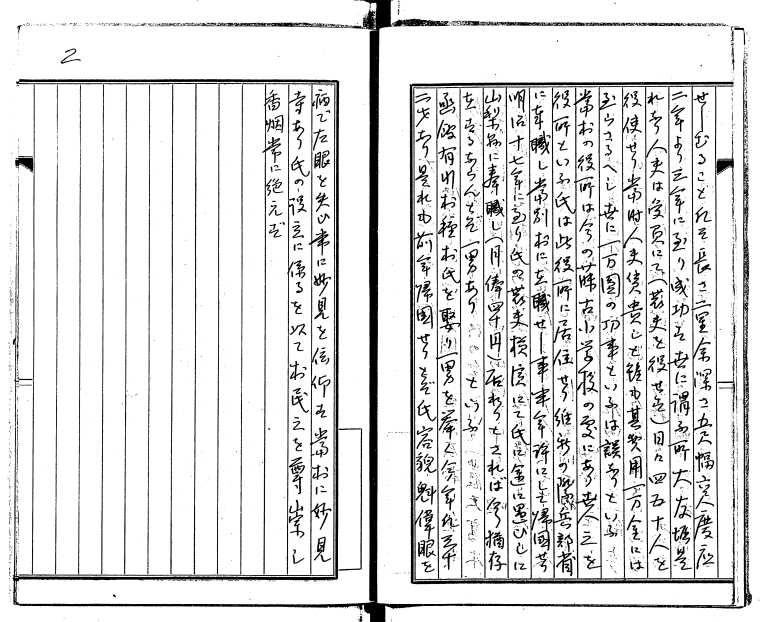 せしむることれを長さ二里余深さ五尺幅六尺慶応
二年より三年に至り成功す世に謂ふ所大友堀是
れなり人夫は受負にて(農夫を役せす)日に四五十人を
役使せり当時人夫賃貴しと雖も其費用一万金には
至らさるへし世に一万円の功事といふは誤なりといふ
当村の役所は今の苗古小学校の処にあり世人之を
役所といふ氏は此役所に居住せり維新の際兵部省
に奉職し当別村に在職せし事半年許にして帰国せり
明治十七年に至り氏の農夫横浜にて氏に逢ひしに
山梨県に奉職し(月俸四十円)居れりとされば今猶存
在するならんと云一男あり といふ
函館有川村種村氏を娶り一男を挙く今年九三十
二才なり是れも前年帰国せりと云氏容貌魁偉眼を
2
病て左眼を失ひ常に妙見を信仰す当村に妙見
寺あり氏の設立に係るを以て村民之を尊崇し
香烟常に絶えず